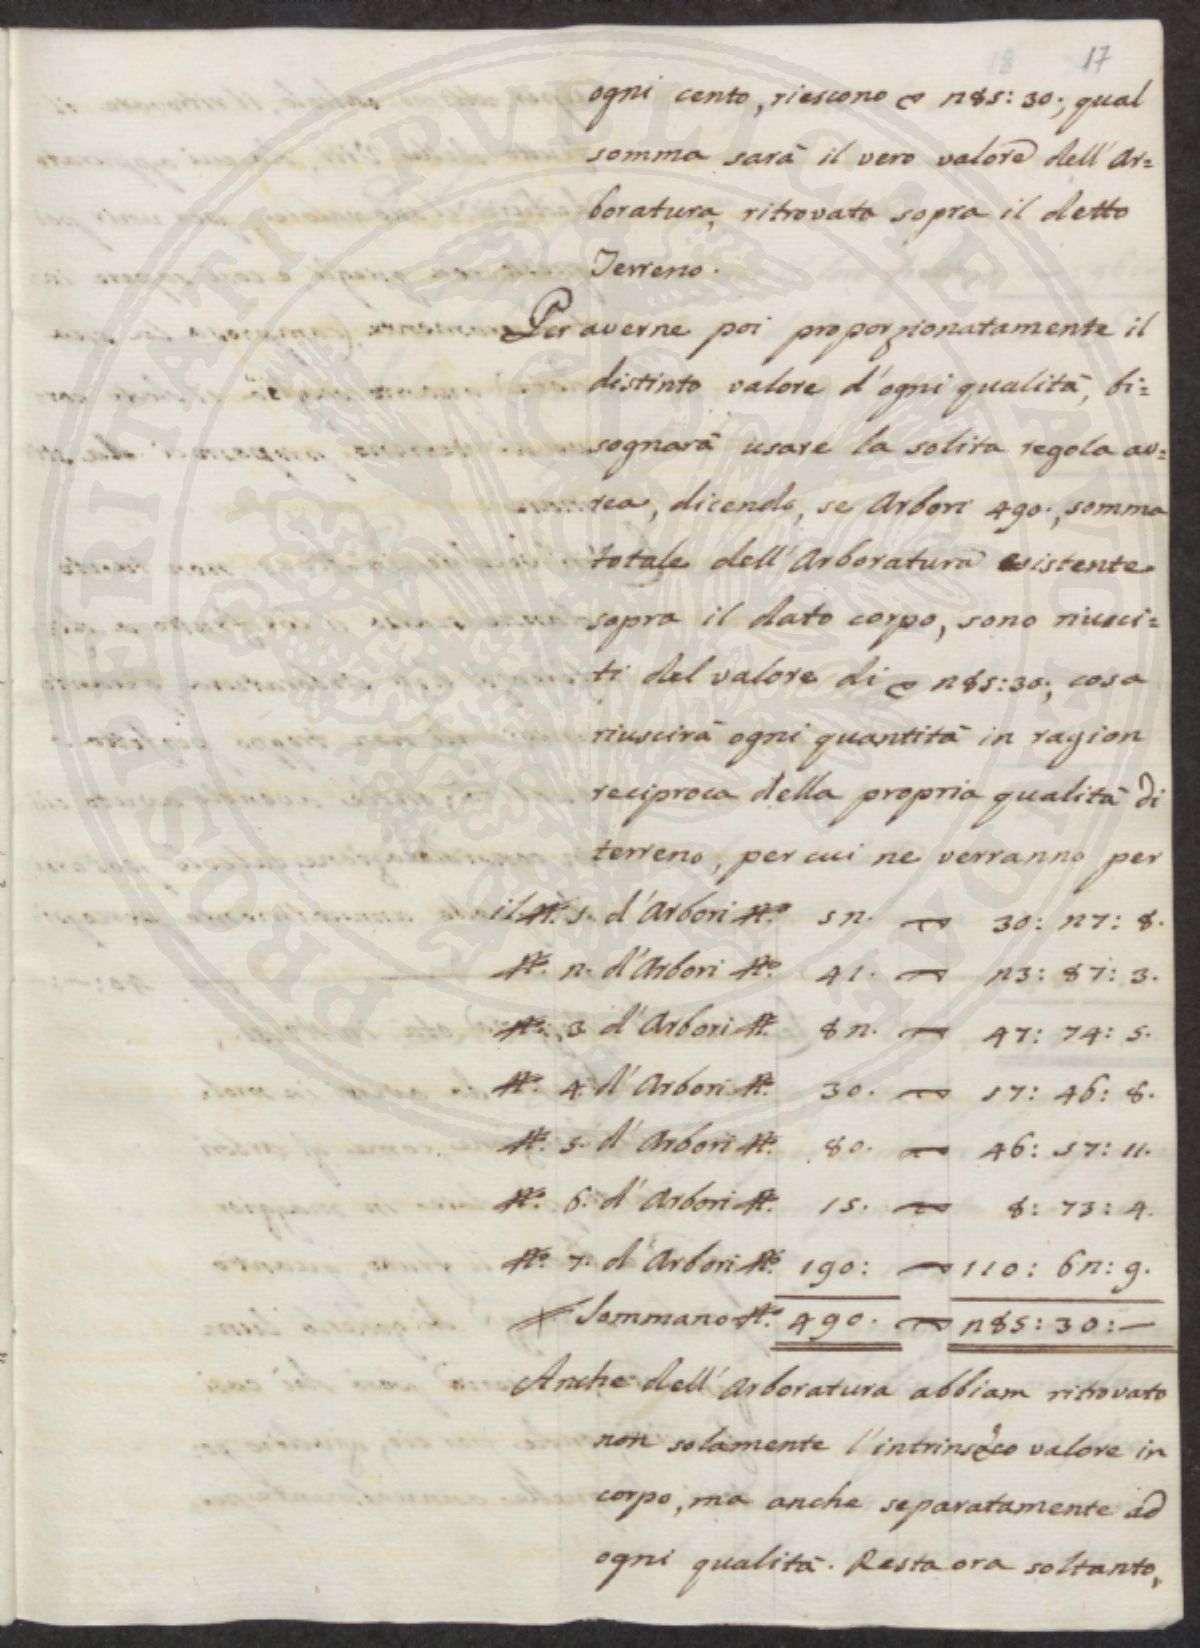 17
ogni cento, riescono ~ 285: 30:, qual
somma sarà il vero valore dell'Ar=
boratura, ritrovata sopra il detto
Terreno.
Per averne poi proporzionatamente il
distinto valore d'ogni qualità, bi=
sognarà usare la solita regola au=
rea, dicendo, se Arbori 490., somma
totale dell'Arboratura esistente
sopra il dato corpo, sono riusci=
ti del valore di ~ 285:30:, cosa
riuscirà ogni quantità in ragion
reciproca della propria qualità di
terreno, per cui ne verranno per
il N.° 1. d'Arbori N.° 52. ~ 30: 27: 8.
N.° 2. d'Arbori N.° 41. ~ 23: 87: 3.
N.° 3. d'Arbori N.° 82. ~ 47: 74: 5.
N.° 4. d'Arbori N.° 30. ~ 17: 46: 8.
N.° 5. d'Arbori N.° 80. ~ 46: 57: 11.
N.° 6. d'Arbori N.° 15. ~ 8: 73: 4.
N.° 7. d'Arbori N.° 190: ~ 110: 62: 9.
Sommano N.° 490. ~ 285: 30: —
Anche dell'Arboratura abbiam ritrovato
non solamente l'intrinseco valore in
corpo, ma anche separatamente ad
ogni qualità. Resta ora soltanto,
PROSPERITATI PVBLICAE AVGENDAE